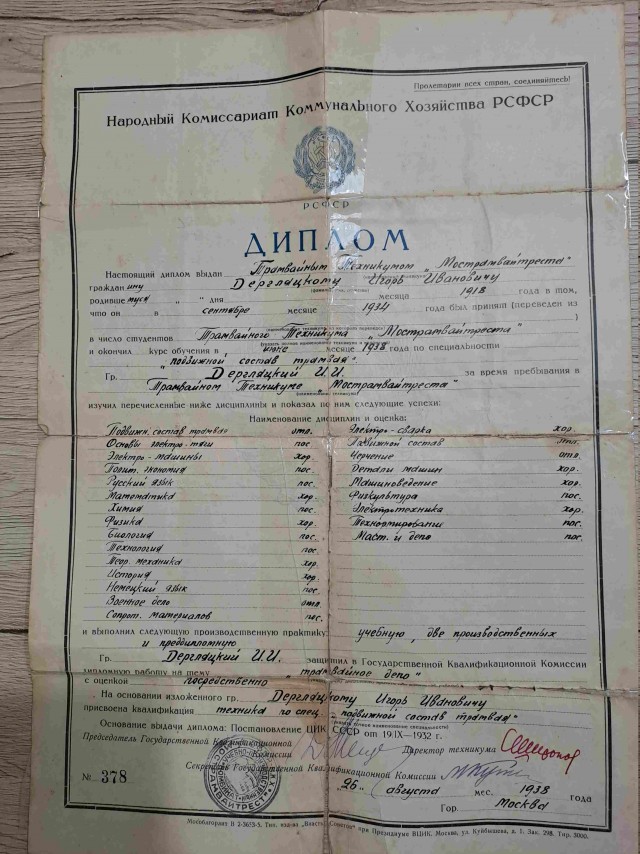 Пролетарии всех стран, соединяйтесь!
Народный Комиссариат Коммунального Хозяйства РСФСР
РСФСР
ДИПЛОМ
Настоящий диплом выдан Трамвайным Техникумом „Мострамвайтреста"
граждан ину Дергляцкому Игорь Ивановичу
родивше муся „ " дня месяца 1918 года в том,
что он в сентябре месяце 1934 года был принят (переведен из
)
в число студентов Трамвайного Техникума „Мострамвайтреста"
и окончил курс обучения в июне месяце 1938 года по специальности
„подвижной состав трамвая"
Гр. Дергляцкий И.И. за время пребывания в
Трамвайном Техникуме „Мострамвайтреста"
изучил перечисленные ниже дисциплины и показал по ним следующие успехи:
Наименование дисциплин и оценка:
Подвижн. состав трамвая отл.
Основы электро-тяги пос.
Электро-машины хор.
Полит. экономия пос.
Русский язык пос.
Математика хор.
Химия пос.
Физика хор.
Биология пос.
Технология пос.
Теор. механика хор.
История хор.
Немецкий язык пос.
Военное дело отл.
Сопрот. материалов пос.
Электро-сварка хор.
Подвижной состав отл.
Черчение отл.
Детали машин хор.
Машиноведение хор.
Физкультура пос.
Электротехника хор.
Технормирование пос.
Маст. и депо пос.
и выполнил следующую производственную практику: учебную, две производственных
и преддипломную
Гр. Дергляцкий И.И. защитил в Государственной Квалификационной Комиссии
дипломную работу на тему „трамвайное депо"
с оценкой посредственно
На основании изложенного гр. Дергляцкому Игорь Ивановичу
присвоена квалификация техника по спец. „подвижной состав трамвая"
Основание выдачи диплома: Постановление ЦИК СССР от 19/IX—1932 г.
Председатель Государственной Квалификационной
Комиссии
Директор техникума
Секретарь Государственной Квалификационной Комиссии
№ 378
„26" августа мес. 1938 года
Гор Москва
Мособлгорлит В 2-3653-5. Тип. изд-ва „Власть Советов" при Президиуме ВЦИК. Москва, ул. Куйбышева, д. 1. Зак. 298. Тир. 3000.